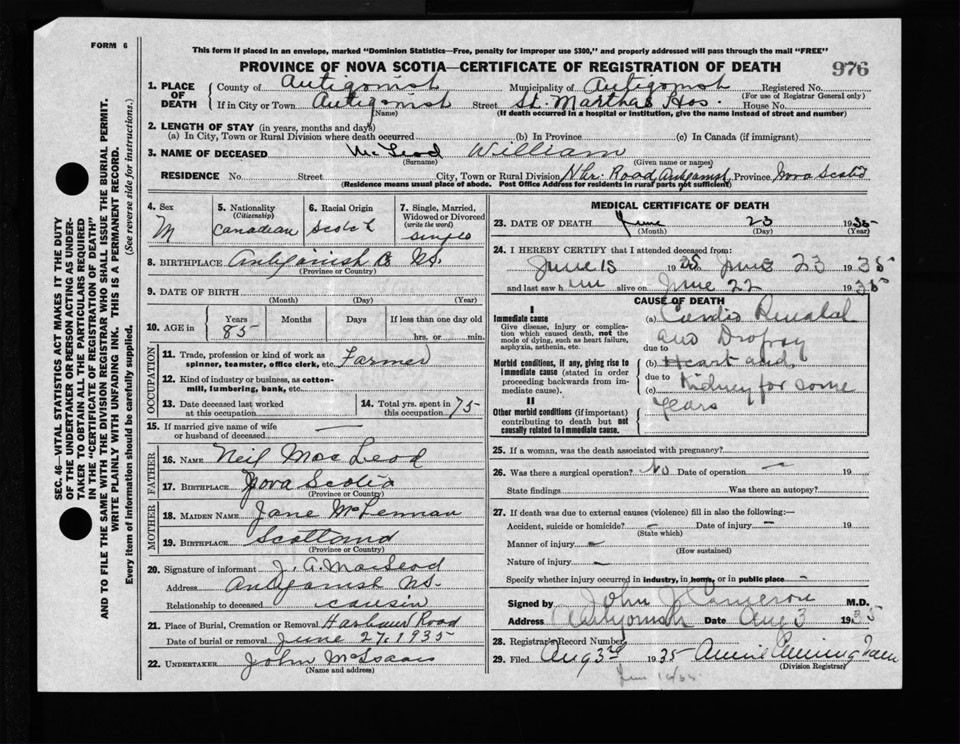 FORM 6
This form if placed in an envelope, marked "Dominion Statistics—Free, penalty for improper use $300," and properly addressed will pass through the mail "FREE"
PROVINCE OF NOVA SCOTIA—CERTIFICATE OF REGISTRATION OF DEATH
976
1. PLACE OF DEATH County of Antigonish Municipality of Antigonish Registered No.
(For use of Registrar General only)
If in City or Town Antigonish Street St. Marthas Hos. House No.
(Name) (If death occurred in a hospital or institution, give the name instead of street and number)
2. LENGTH OF STAY (in years, months and days)
(a) In City, Town or Rural Division where death occurred (b) In Province (c) In Canada (if immigrant)
3. NAME OF DECEASED McLeod William
(Surname) (Given name or names)
RESIDENCE No. Street City, Town or Rural Division Hbr. Road Antigonish Province Nova Scotia
(Residence means usual place of abode. Post Office Address for residents in rural parts not sufficient)
4. Sex M
5. Nationality (Citizenship) Canadian
6. Racial Origin Scotch
7. Single, Married, Widowed or Divorced (write the word) Single
8. BIRTHPLACE Antigonish Co NS.
(Province or Country)
9. DATE OF BIRTH
(Month) (Day) (Year)
10. AGE in Years 85 Months Days If less than one day old hrs. or min.
OCCUPATION
11. Trade, profession or kind of work as spinner, teamster, office clerk, etc. Farmer
12. Kind of industry or business, as cotton-mill, lumbering, bank, etc.
13. Date deceased last worked at this occupation
14. Total yrs. spent in this occupation 75
15. If married give name of wife or husband of deceased —
FATHER
16. NAME Neil MacLeod
17. BIRTHPLACE Nova Scotia
(Province or Country)
MOTHER
18. MAIDEN NAME Jane McLennan
19. BIRTHPLACE Scotland
(Province or Country)
20. Signature of informant J. A. MacLeod
Address Antigonish NS.
Relationship to deceased cousin
21. Place of Burial, Cremation or Removal Harbour Road
Date of burial or removal June 27, 1935
22. UNDERTAKER John McIsaac
(Name and address)
MEDICAL CERTIFICATE OF DEATH
23. DATE OF DEATH June 23 1935
(Month) (Day) (Year)
24. I HEREBY CERTIFY that I attended deceased from:
June 15 1935 June 23 1935
and last saw him alive on June 22 1935
CAUSE OF DEATH
I
Immediate cause
Give disease, injury or complication which caused death, not the mode of dying, such as heart failure, asphyxia, asthenia, etc.
Morbid conditions, if any, giving rise to immediate cause (stated in order proceeding backwards from immediate cause).
II
Other morbid conditions (if important) contributing to death but not causally related to immediate cause.
(a) Cardio Renal
and Dropsy
due to
(b) Heart and
due to
(c) Kidney for some
years
25. If a woman, was the death associated with pregnancy?
26. Was there a surgical operation? No Date of operation — 19
State findings Was there an autopsy?
27. If death was due to external causes (violence) fill in also the following:—
Accident, suicide or homicide? — Date of injury — 19
(State which)
Manner of injury —
(How sustained)
Nature of injury —
Specify whether injury occurred in industry, in home, or in public place —
Signed by John J Cameron M.D.
Address Antigonish Date Aug 3 1935
28. Registrar's Record Number
29. Filed Aug 3rd 1935
(Division Registrar)
SEC. 46—VITAL STATISTICS ACT MAKES IT THE DUTY OF THE UNDERTAKER OR PERSON ACTING AS UNDERTAKER TO OBTAIN ALL THE PARTICULARS REQUIRED IN THE "CERTIFICATE OF REGISTRATION OF DEATH" AND TO FILE THE SAME WITH THE DIVISION REGISTRAR WHO SHALL ISSUE THE BURIAL PERMIT.
WRITE PLAINLY WITH UNFADING INK. THIS IS A PERMANENT RECORD.
Every item of information should be carefully supplied. (See reverse side for instructions.)